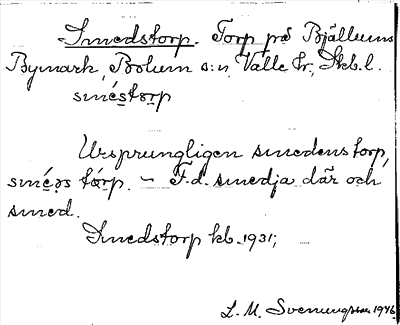 Smedstorp. Torp på Bjällums
Bymark, Bolum s:n, Valle hr, Skb. l.
smésto̱rp
Ursprungligen smedens torp,
sméǝs tó̱rp. – F.d. smedja där och
smed.
Smedstorp kb. 1931;
L. M. Svenungsson 1946